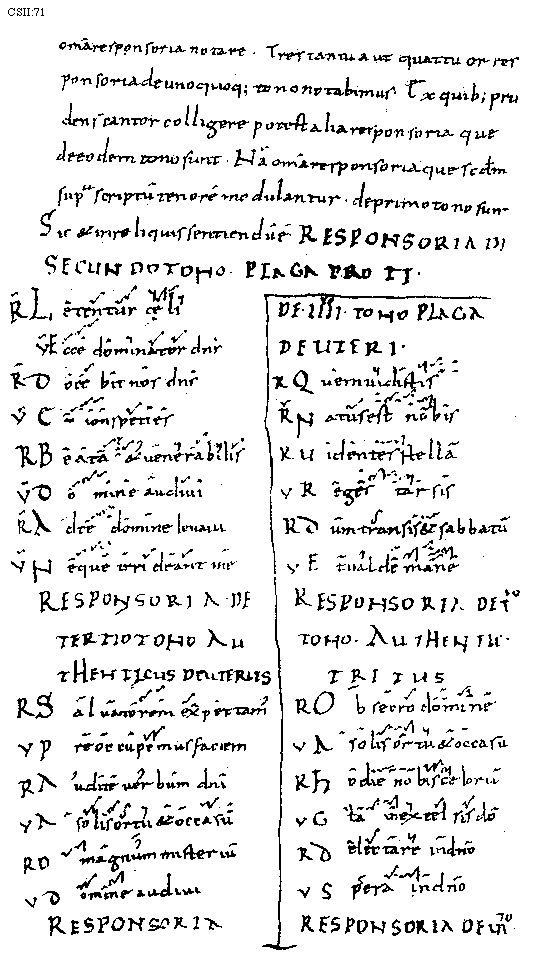 CSII:71
om̄a responsoria notare. Tres tantū aut quattuor res
ponsoria de unoquoq; tono notabimus Ex quib; pru
dens cantor colligere potest alia responsoria que
de eodem tono sunt. Nā om̄a responsoria que scdm̄
scriptū tenorē modulantur. de primo tono sunt
Sic & in reliquis sentiendū ē RESPONSORIA IN
SECUNDO TONO. PLAGA PROTI.
R̄ Letentur celi
V̄ Ecce dominator dn̄s
R̄ Docebit nos dn̄s
V̄ C
R̄ Beata & uenerabilis
V̄ Domine audiui
R̄ Ad te domine leuaui
V̄ Neque irrideant me
RESPONSORIA DE
TERTIO TONO AU
THENTICUS DEUTERUS
R Saluatorem expectam
V Preoccupemus faciem
R Audite uerbum dn̄i
V A solis ortū & occasū
R O magnum misteriū
V Domine audiui
RESPONSORIA
DE IIII. TONO PLAGA
DEUTERI.
R Quem uidistis
R̄ Natus est nobis
R Uidentes stellā
V Reges tarsis
R Dum transis& sabbatū
V Et ualde mane
RESPONSORIA DE
TONO. AUTHENTU.
TRITUS
R Obsecro domine
V A solis ortū & occasu
R Hodie nobis celorū
V Gl̄a in excelsis dō
R Delectare in dn̄o
V Spera in dn̄o
RESPONSORIA DE